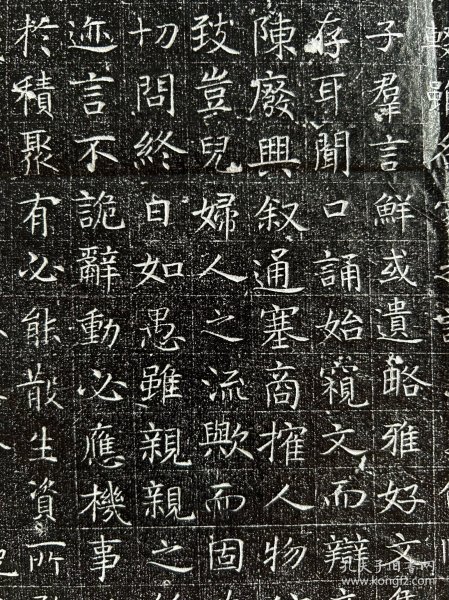 子羣言鮮或遺略雅好文
存耳聞口誦始窺文而辯
陳廢興叙通塞商搉人物
致豈兒婦人之流歟而固
切問終日如愚雖親親之
迩言不詭辭動必應機事
於積聚有必能散生資所
孔夫子旧书网
www.kongfz.com